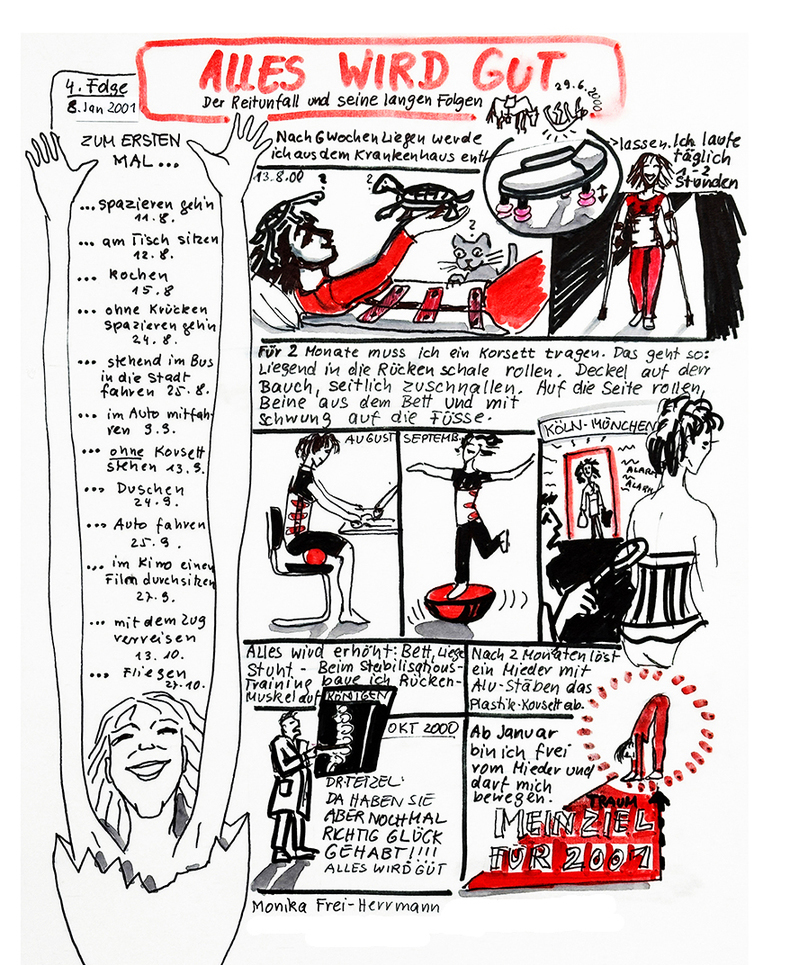 4. Folge
8. Jan 2001
ALLES WIRD GUT
Der Reitunfall und seine langen Folgen
29.6.2000
ZUM ERSTEN
MAL...
...spazieren geh'n
11.8.
... am Tisch sitzen
12.8.
... Kochen
15.8
... ohne Krücken
spazieren geh'n
24.8.
... stehend im Bus
in die Stadt
fahren 25.8.
... im Auto mitfah-
ren 9.9.
... ohne Korsett
stehen 13.9.
... Duschen
24.9.
... Auto fahren
25.9.
... im Kino einen
Film durchsitzen
27.9.
... mit dem Zug
verreisen
13.10.
... Fliegen
27.10.
Nach 6 Wochen Liegen werde
ich aus dem Krankenhaus entl
>lassen. Ich laufe
täglich
1-2
Stunden
13.8.00
?
2
?
Für 2 Monate muss ich ein Korsett tragen. Das geht so:
Liegend in die Rückenschale rollen. Deckel auf den
Bauch, seitlich zuschnallen. Auf die Seite rollen,
Beine aus dem Bett und mit
Schwung auf die Füsse.
AUGUST
SEPTEMB.
KÖLN-MÖNCHEN
ALARM
ALARM
Alles wird erhöht: Bett, Liege
Stuhl - Beim Stabilisations-
Training baue ich Rücken-
Muskel auf
Nach 2 Monaten löst
ein Mieder mit
Alu-Stäben das
Plastik-Korsett ab.
RÖNTGEN
OKT 2000
DR. TEIZEL:
DA HABEN SIE
ABER NOCHMAL
RICHTIG GLÜCK
GEHABT!!!!
ALLES WIRD GÜT
Ab Januar
bin ich frei
vom Mieder und
darf mich
bewegen.
TRAUM
MEIN ZIEL
FÜR 2001
Monika Frei-Herrmann